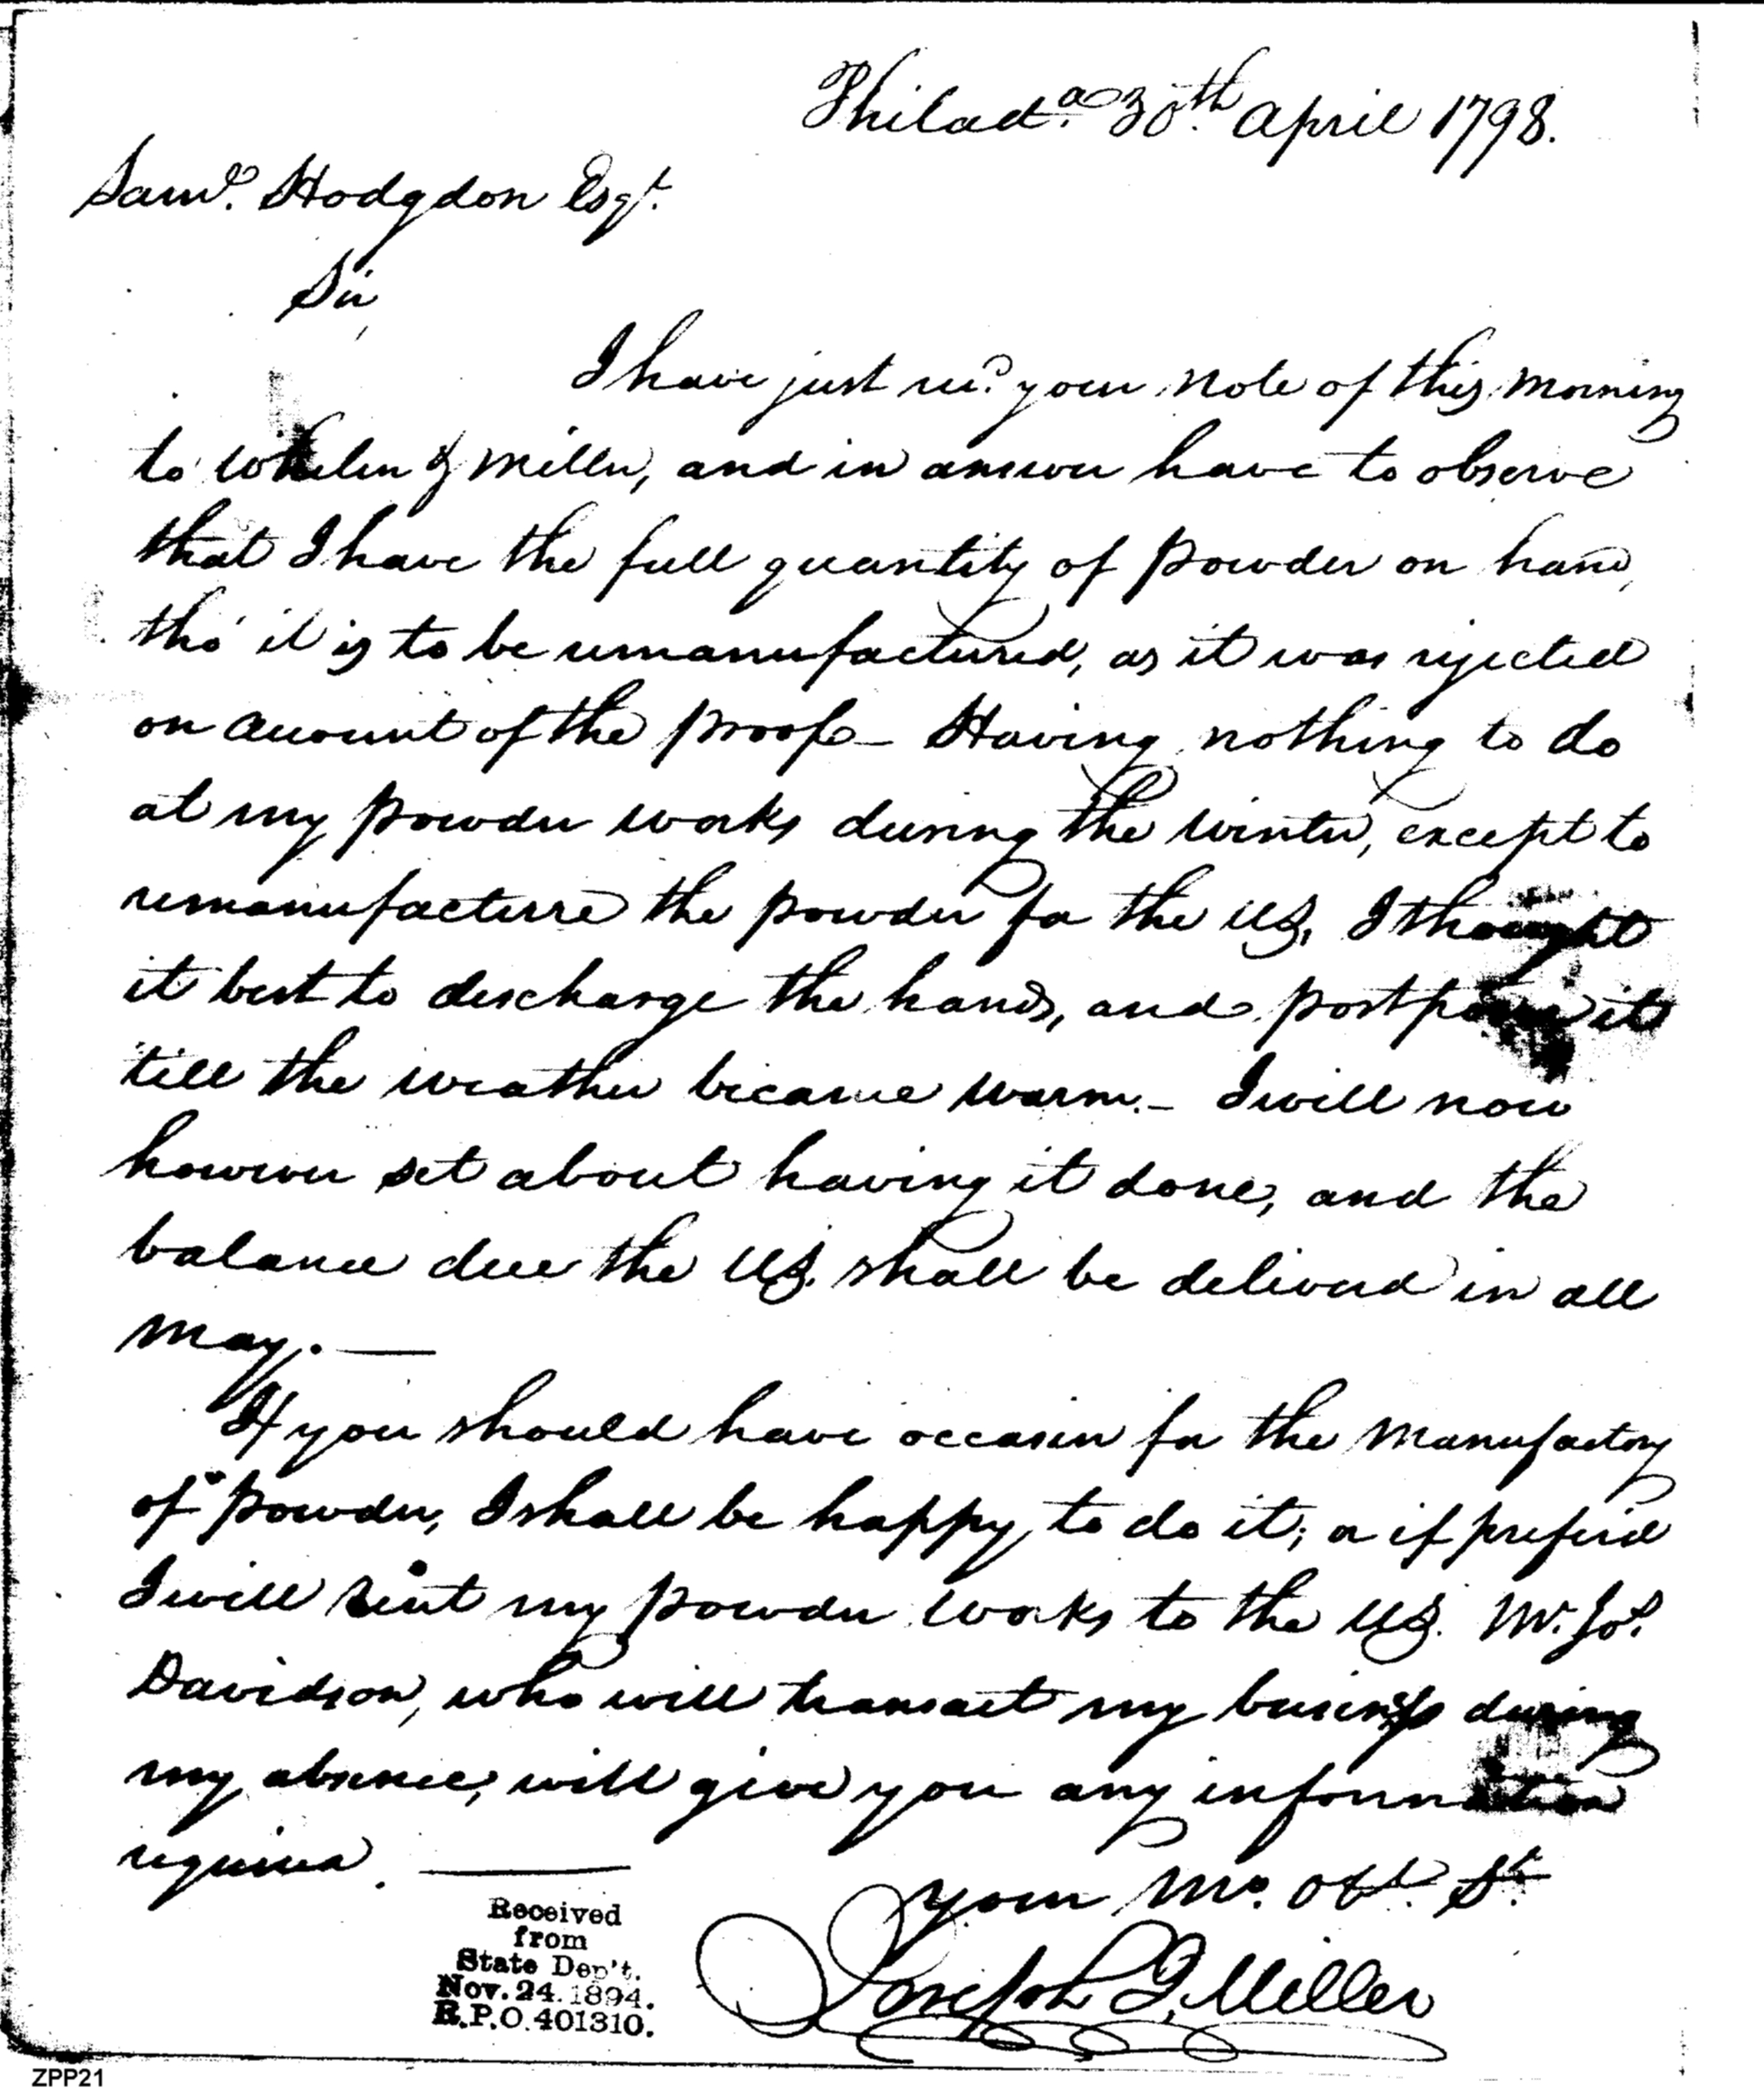 Philad.a 30th. April 1798.
Saml. Hodgdon Esqr.
Sir,
I have just recd. your note of this morning
to Whelen & Miller, and in answer have to observe
that I have the full quantity of powder on hand,
tho' it is to be remanufactured, as it was rejected
on account of the proof— Having nothing to do
at my powder works during the winter, except to
remanufacture the powder for the US, I thought
it best to discharge the hands, and postpone it
till the weather became warm.— I will now
however set about having it done, and the
balance due the US. shall be deliverd in all
May.—
If you should have occasion for the manufactory
of powder, I shall be happy to do it; or if preferd
I will rent my powder works to the US. Mr. Jos.
Davidson, who will transact my business during
my absence, will give you any information
required.
your Mo. Obt. St.
Joseph J. Miller
Received
from
State Dep't.
Nov. 24. 1894.
R.P.O. 401310.
ZPP21